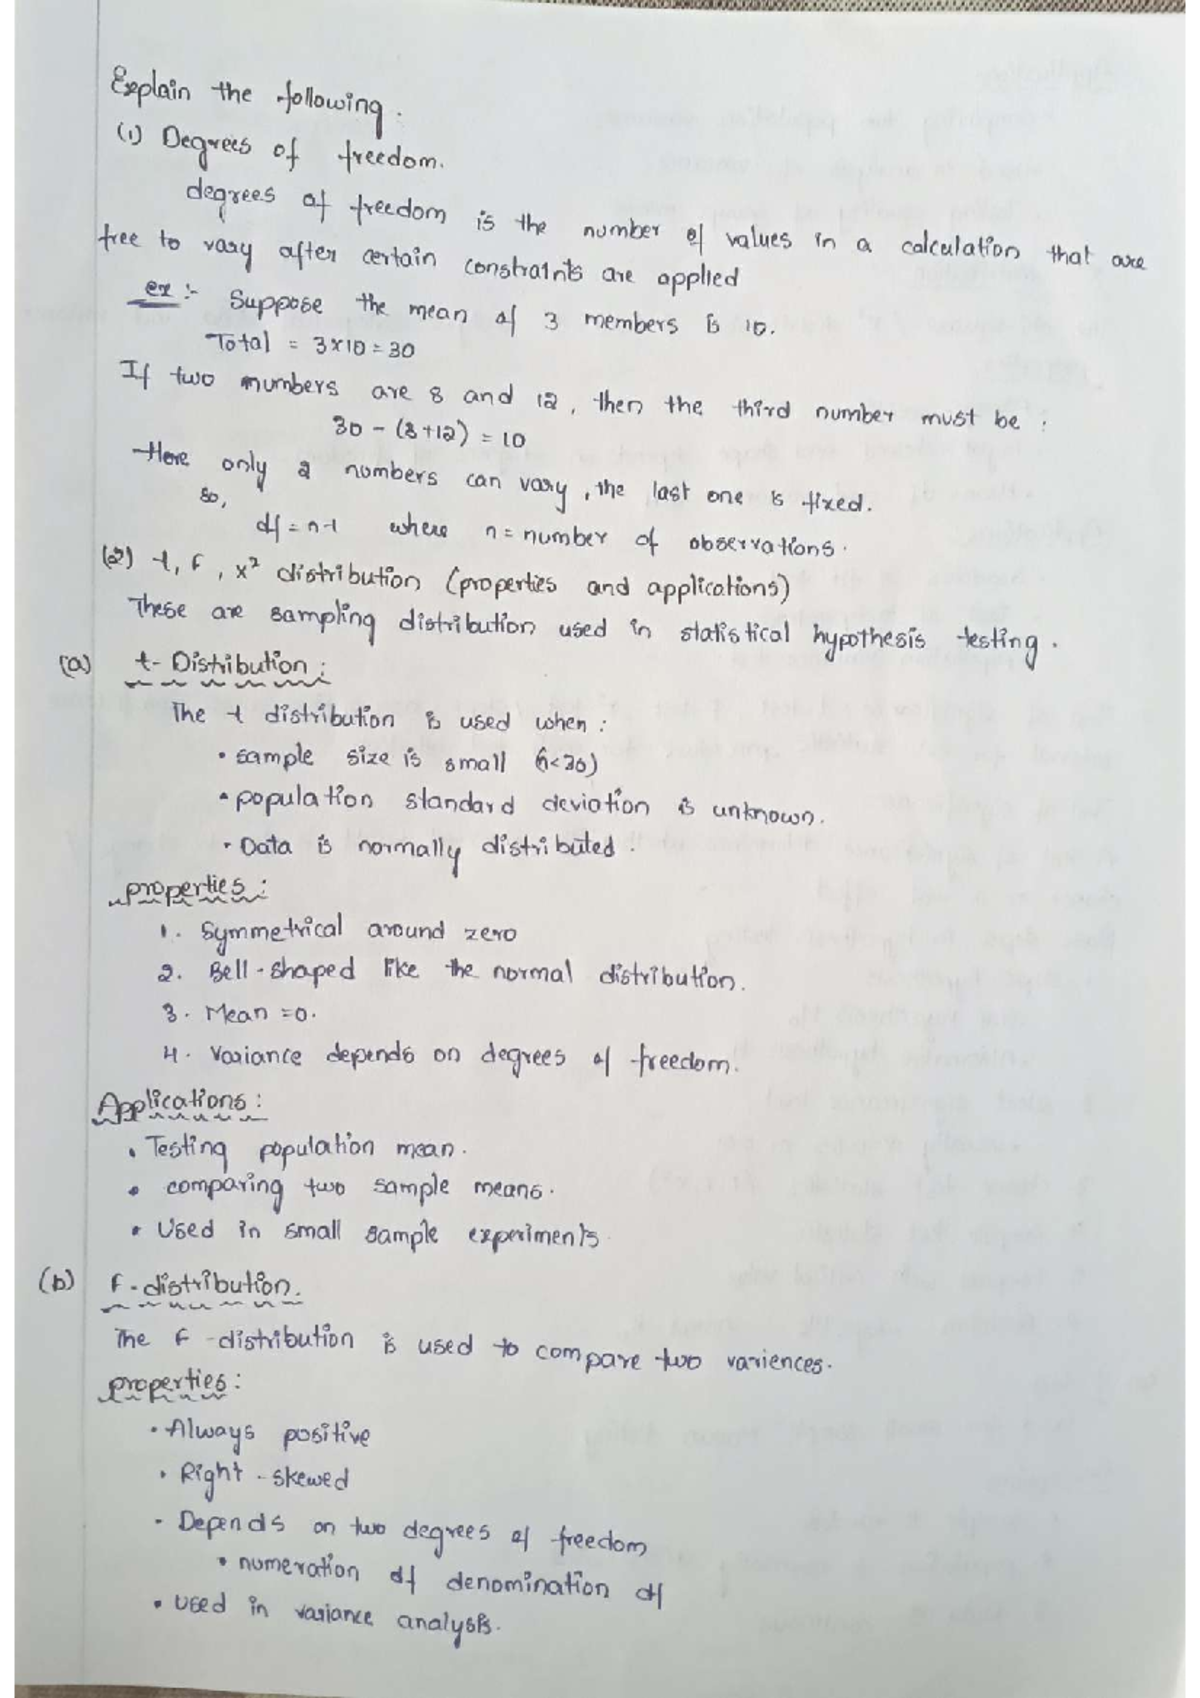 Explain the following.
(1) Degrees of freedom.
degrees of freedom is the number of values in a calculation that are
free to vary after certain constraints are applied
ex :- Suppose the mean of 3 members is 10.
Total = 3x10 = 30
If two numbers are 8 and 12, then the third number must be :
30 - (8+12) = 10
Here only 2 numbers can vary, the last one is fixed.
so,
df = n-1 where n = number of observations.
(2) t, F, x² distribution (properties and applications)
These are sampling distribution used in statistical hypothesis testing.
(a) t- Distribution :
The t distribution is used when :
• sample size is small (n<30)
• population standard deviation is unknown.
• Data is normally distributed.
properties :
1. Symmetrical around zero
2. Bell-shaped like the normal distribution.
3. Mean = 0.
4. Variance depends on degrees of freedom.
Applications :
• Testing population mean.
• comparing two sample means.
• Used in small sample experiments.
(b) F-distribution.
The F-distribution is used to compare two variences.
properties :
• Always positive
• Right-skewed
• Depends on two degrees of freedom
• numeration df denomination df
• used in variance analysis.